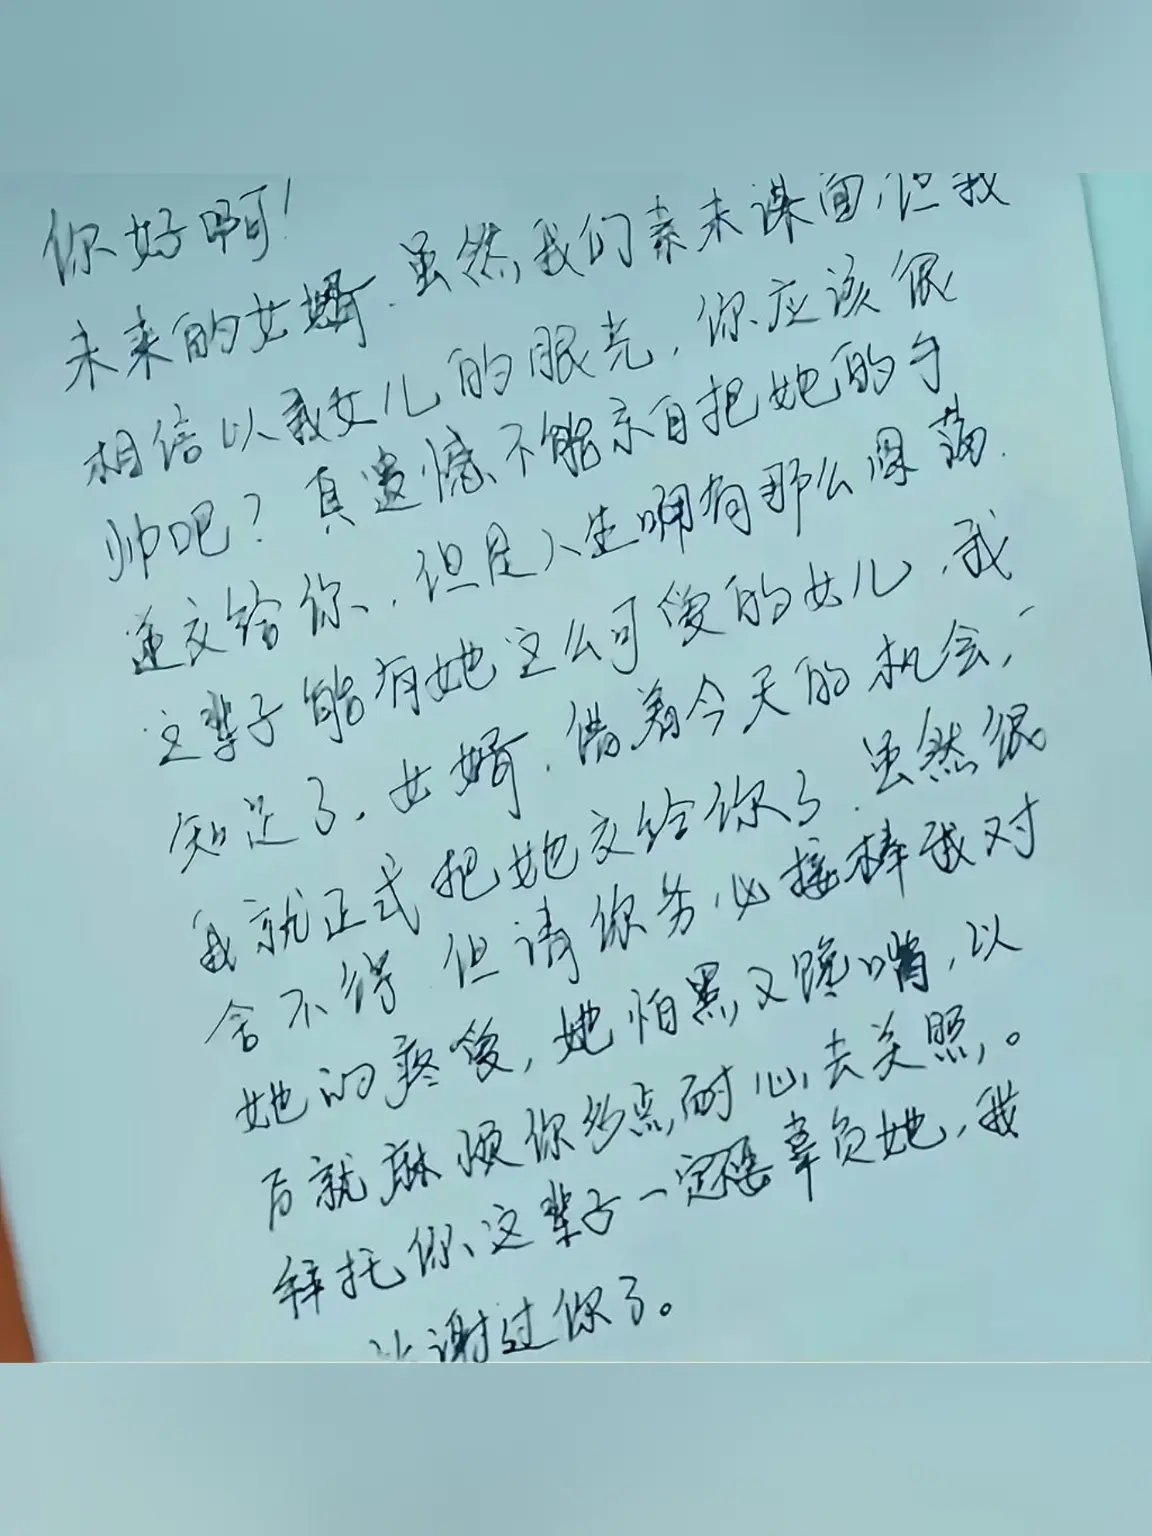 你好啊！
未来的女婿.虽然,我们素未谋面,但我
相信以我女儿的眼光,你应该很
帅吧?真遗憾不能亲自把她的手
递交给你,但是人生哪有那么圆满.
这辈子能有她这么可爱的女儿,我
知足了.女婿.借着今天的机会,
我就正式把她交给你了.虽然很
舍不得.但请你务必接棒我对
她的疼爱,她怕黑又馋嘴,以
后就麻烦你多点耐心去关照。
拜托你、这辈子一定不要辜负她,我
谢过你了。